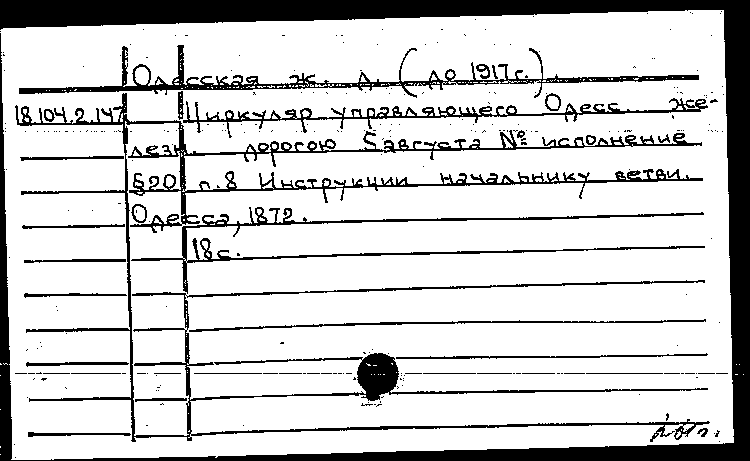 Одесская ж. д. (до 1917г.).
18.104.2.147 Циркуляр управляющего Одесс. же-
лезн. дорогою 5 августа № исполнение
§20 п.8 Инструкции начальнику ветви.
Одесса, 1872.
18с.